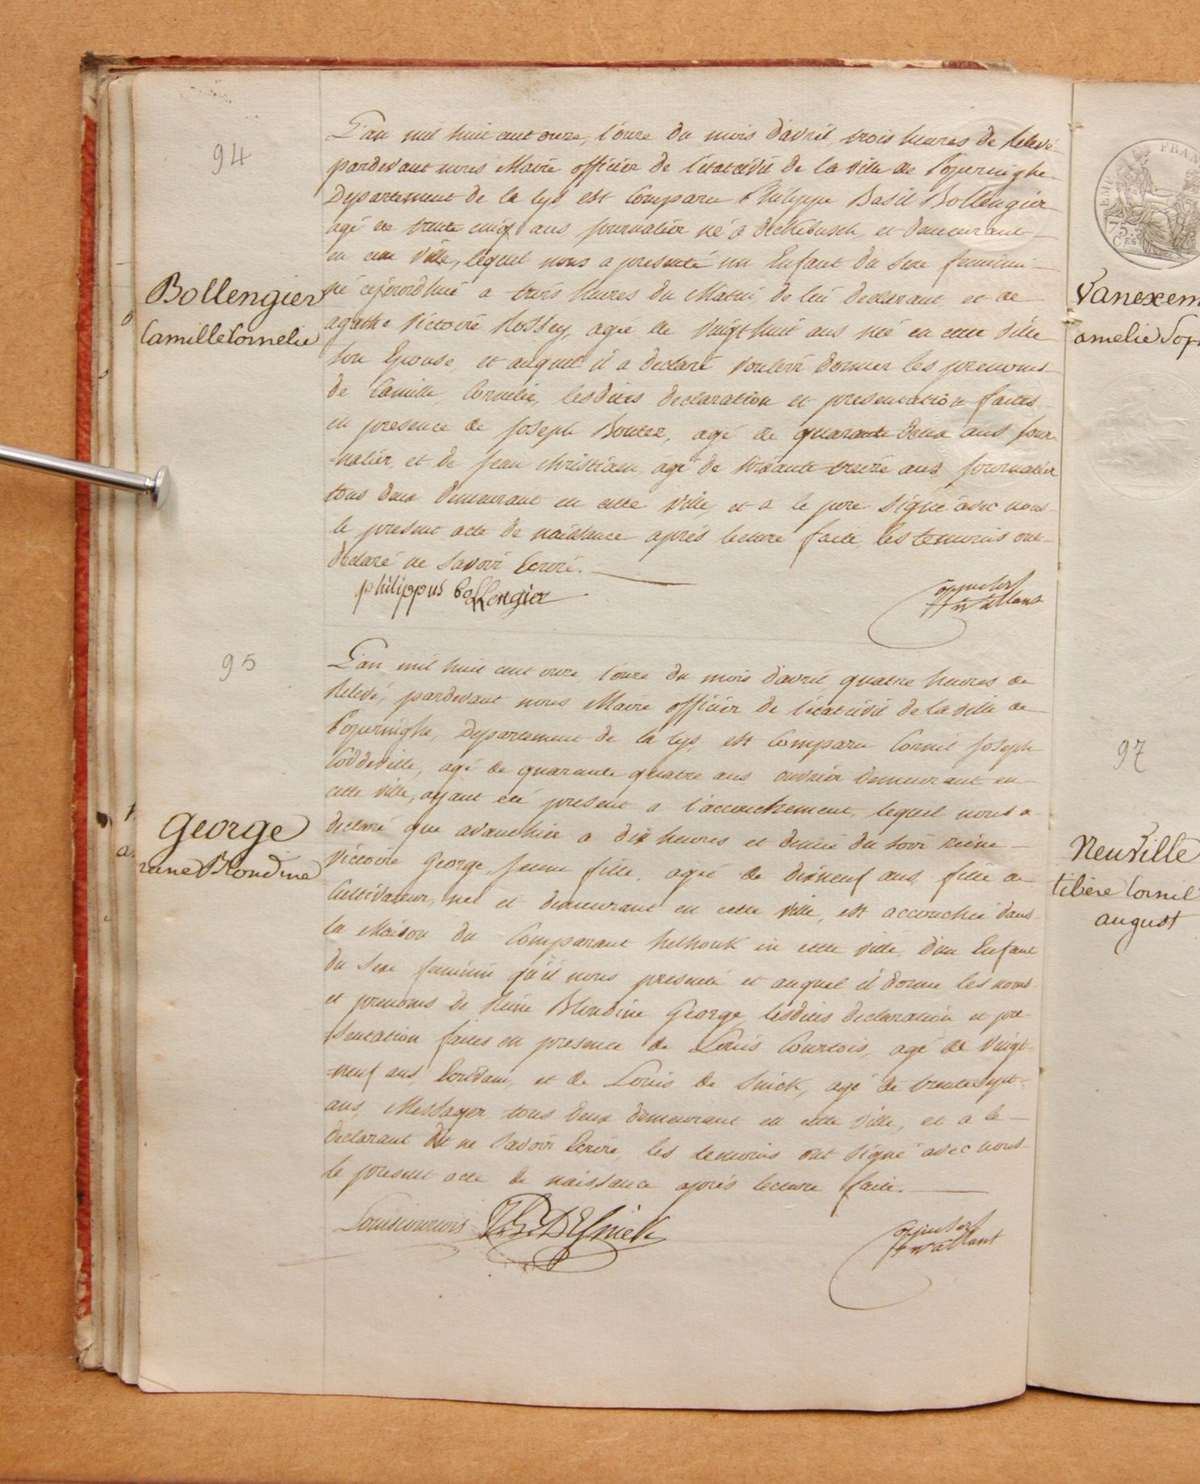 94
Bollengier
Camille Cornelie
L'an mil huit cent onze, l'onze du mois d'avril, trois heures de relevé
pardevant nous Maire officier de l'état civil de la ville de Poperinghe
Departement de la Lys est Comparu Philippe Basil Bollengier
agé de trente cinq ans journalier né à dickebusch, et demeurant
en cette ville, lequel nous a presenté un Enfant du sexe feminin
né cejourdhui a trois heures du Matin de lui declarant et de
agathe Victoire Rossey, agée de vingt huit ans née en cette ville
son Epouse, et auquel il a declaré vouloir donner les prenoms
de Camille Cornelie, lesdites declaration et presentation faites
en presence de Joseph Boutez, agé de quarante deux ans jour
nalier, et de Jean Christiaen, agé de ans journalier
tous deux demeurant en cette ville, et a le pere signé avec nous
le present acte de naissance après lecture faite, les temoins ont
declaré ne savoir Ecrire.
philippus bollengier
95
George
reine Blondine
L'an mil huit cent onze, l'onze du mois d'avril quatre heures de
relevé, pardevant nous Maire officier de l'état civil de la ville de
Poperinghe, Departement de la Lys, est Comparu Cornil Joseph
Coddeville, agé de quarante quatre ans ouvrier demeurant en
cette ville, ayant été present a l'accouchement, lequel nous a
declaré que avanthier a dix heures et demie du soir reine
Victoire George, jeune fille, agée de dixneuf ans, fille de
Cultivateur, née et demeurant en cette ville, est accouchée dans
la Maison du Comparant en cette ville, d'un Enfant
du sexe feminin qu'il nous presenté et auquel il donne les noms
et prenoms de Reine Blondine George, lesdites declaration et pre
sentation faites en presence de Louis Courtois, agé de vingt
neuf ans, Ecrivain, et de Louis de Snick, agé de trente sept
ans, Messager tous deux demeurant en cette ville, et a le
declarant dit ne savoir Ecrire, les temoins ont signé avec nous
le present acte de naissance après lecture faite.
Louis courtois DeSnick
FRAN
75
CES
Vanexem
amelie Sop
97
Neuville
tibère Cornil
august